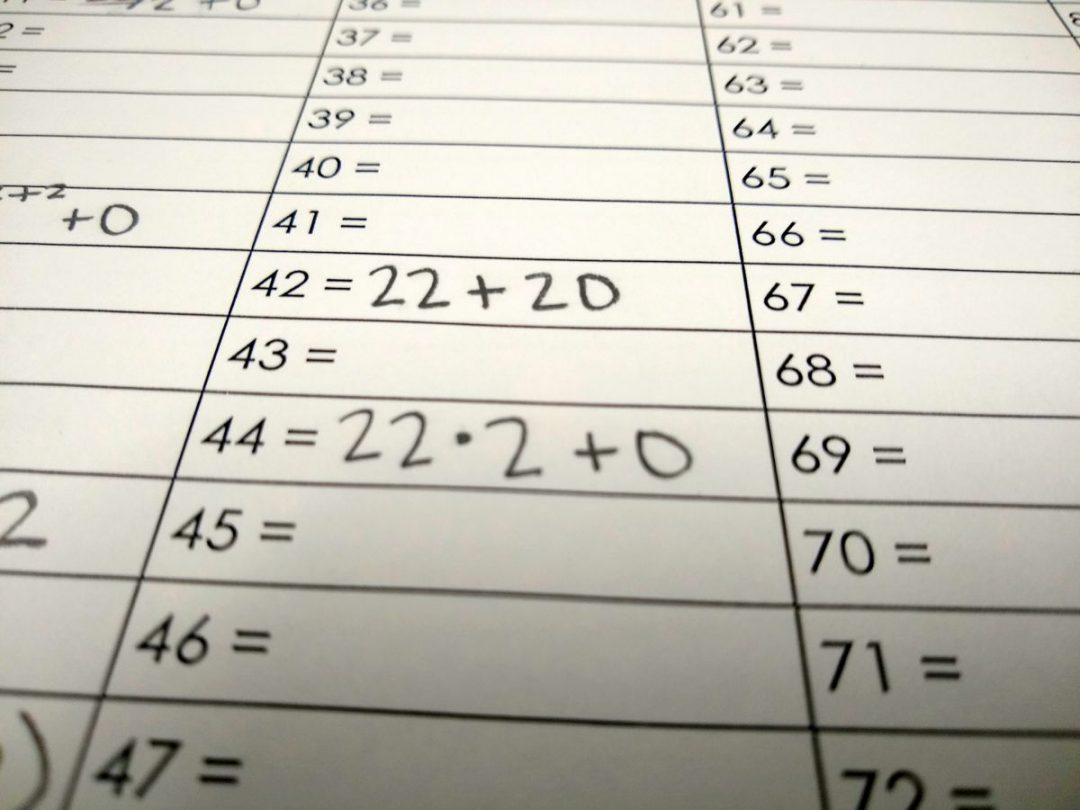 +0
36 =
37 =
38 =
39 =
40 =
41 =
42 = 22 + 20
43 =
44 = 22 • 2 + 0
45 =
46 =
47 =
61 =
62 =
63 =
64 =
65 =
66 =
67 =
68 =
69 =
70 =
71 =
72 =
2 =
=
+2
+0
2
)